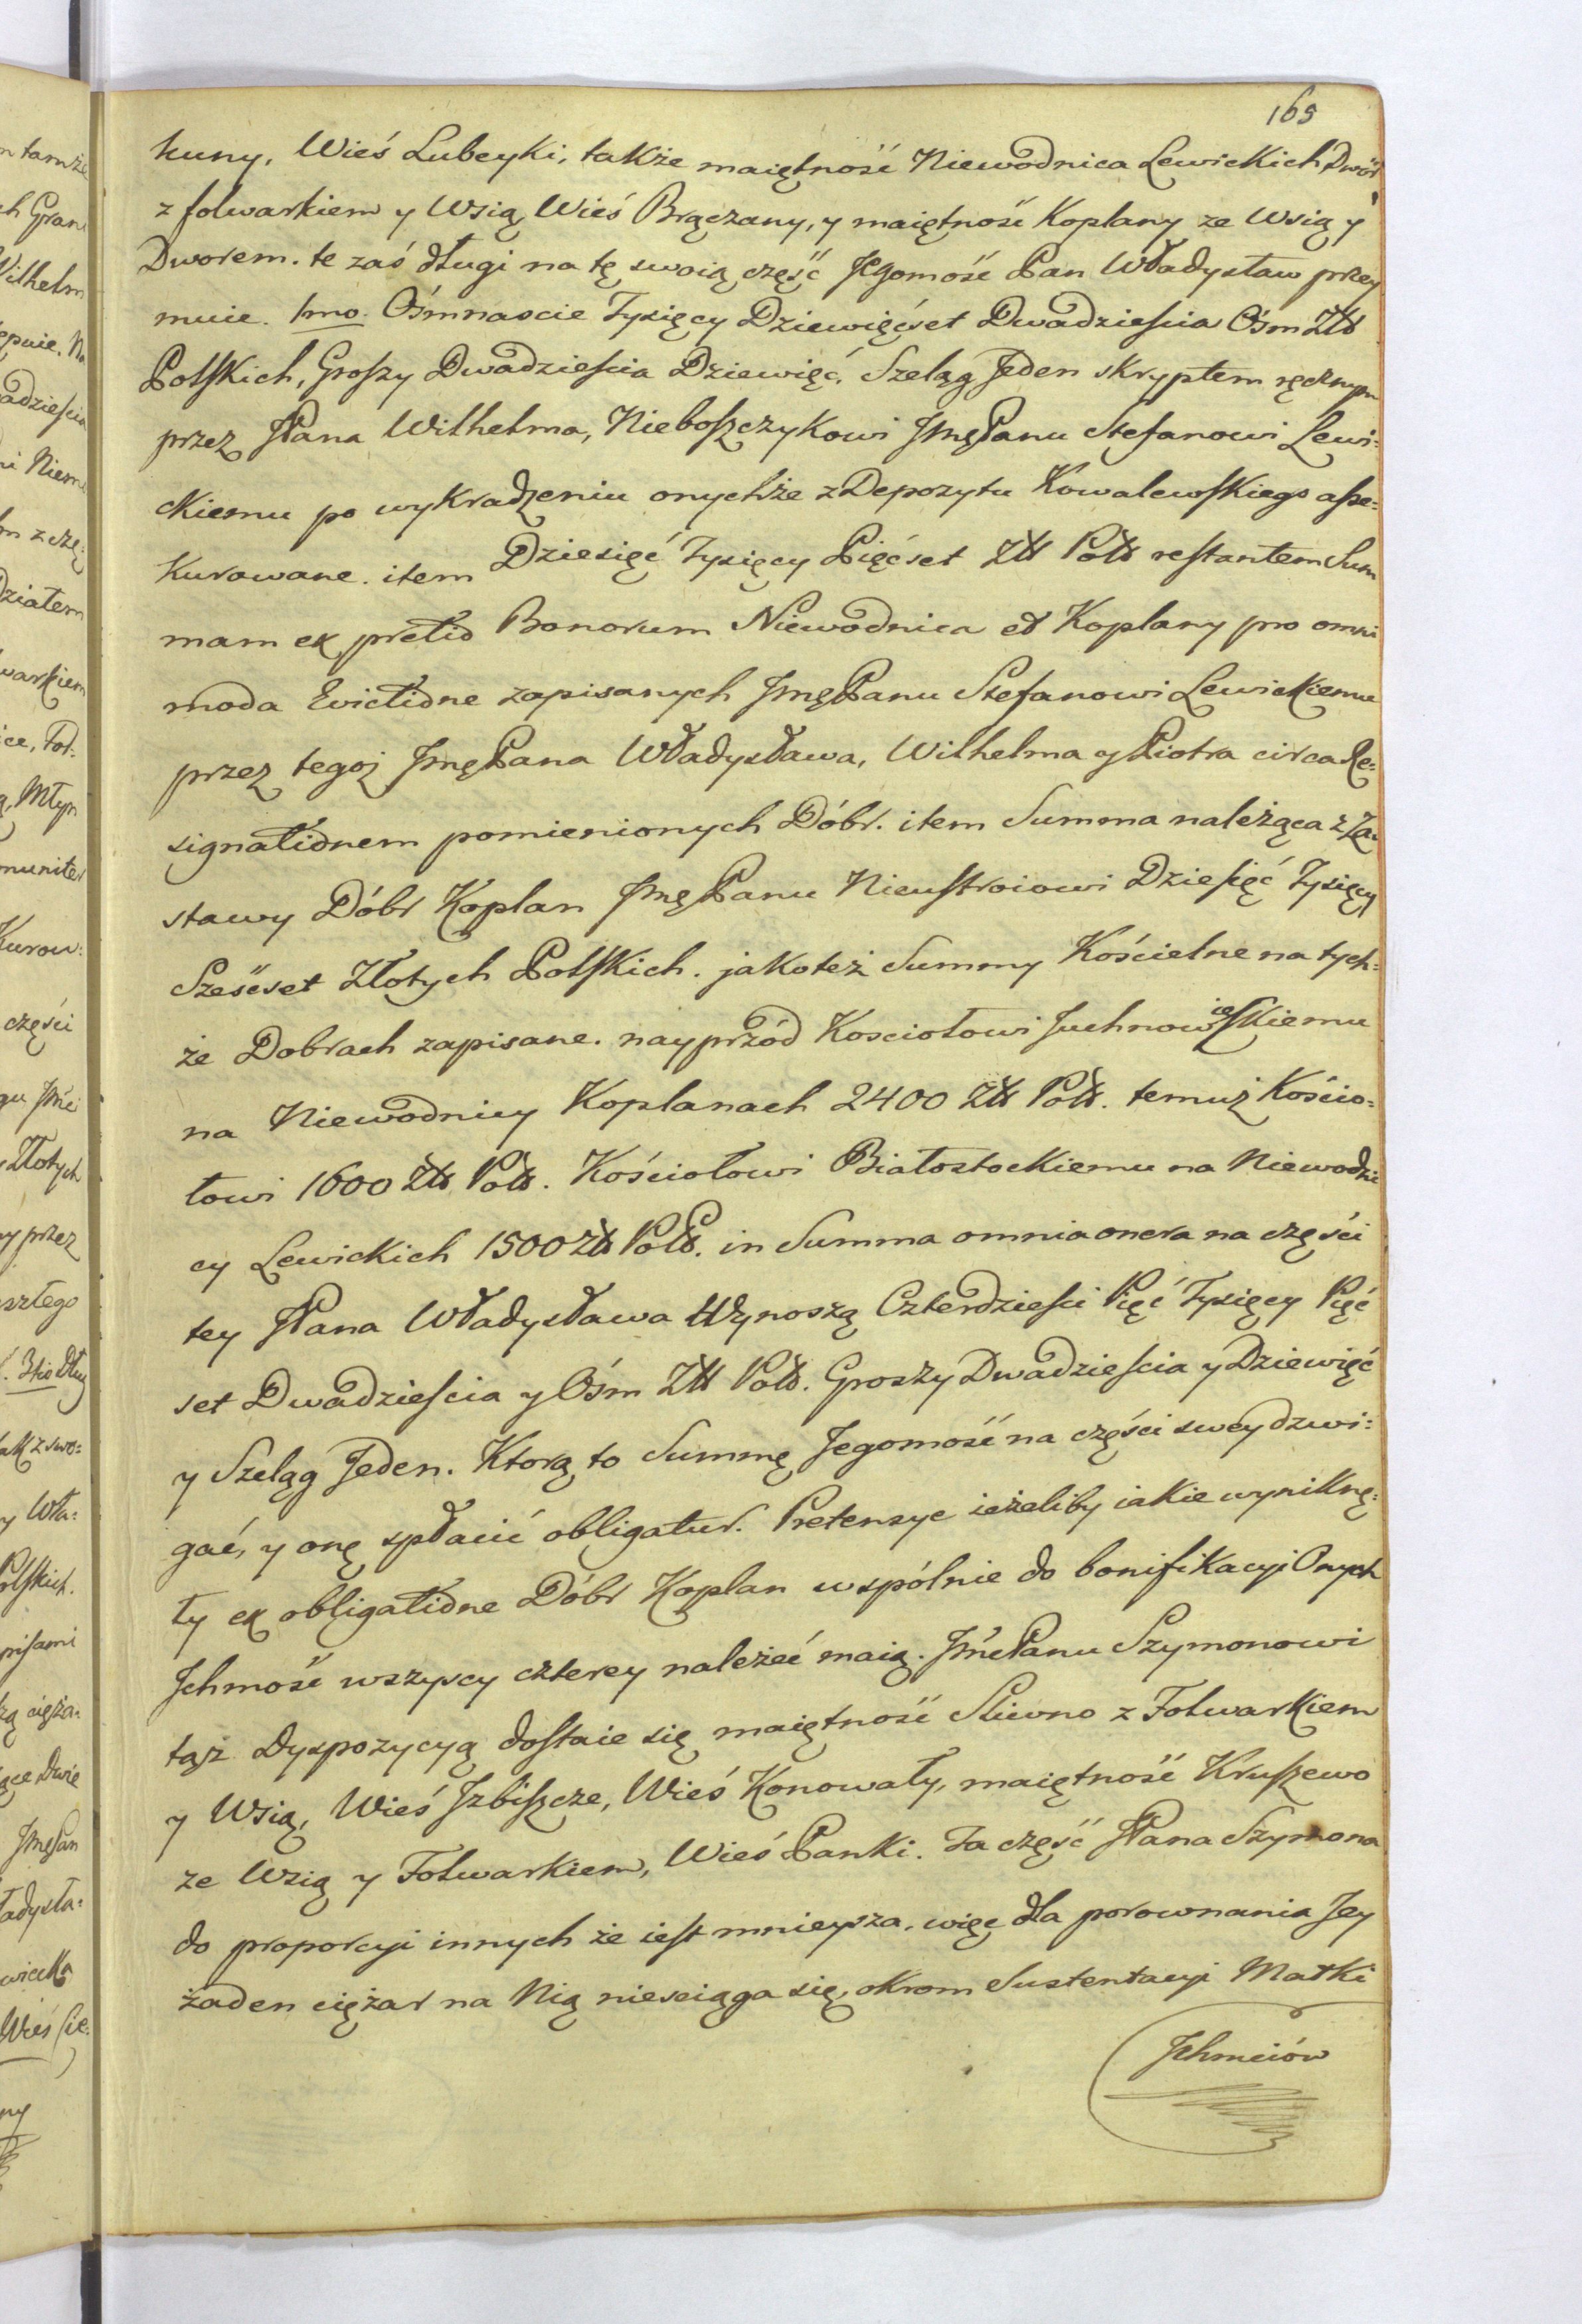 165
kuny, Wieś Lubeyki, także maiętność Niewodnica Lewickich Dwór
z folwarkiem y Wsią, Wieś Brączany, y maiętność Koplany ze Wsią y
Dworem. te zaś długi na tę swoią część Jegomość Pan Władysław przey
muie. 1mo. Ośmnascie Tysięcy Dziewięćset Dwadzieścia Ośm Złł
Polskich, Groszy Dwadzieścia Dziewięć, Szeląg Jeden skryptem ręcznym
przez JPana Wilhelma, Nieboszczykowi JmęPanu Stefanowi Lewi=
ckiemu po wykradzeniu onychże z Depozytu Kowalewskiego asse=
kurowane. item Dziesięć Tysięcy Pięćset Złł Polł restantem Sum
mam ex pretio Bonorum Niewodnica et Koplany pro omni
moda Evictione zapisanych JmęPanu Stefanowi Lewickiemu
przez tegoż JmęPana Władysława, Wilhelma y Piotra circa Re=
signationem pomienionych Dóbr. item Summa należąca z Za=
stawy Dóbr Koplan JmęPanu Nieustroiowi Dziesięć Tysięcy
Sześćset Złotych Polskich. jakoteż Summy Kościelne na tych=
że Dobrach zapisane. nayprzód Kosciołowi Juchnowieskiemu
na Niewodnicy Koplanach 2400 Złł Polł. temuż Kościo=
łowi 1600 Złł Polł. Kościołowi Białostockiemu na Niewodni
cy Lewickich 1500 Złł Polł. in Summa omnia onera na części
tey JPana Władysława Wynoszą Czterdzieści Pięć Tysięcy Pięć
set Dwadzieścia y Ośm Złł Polł. Groszy Dwadzieścia y Dziewięć
y Szeląg Jeden. Ktorą to Summę Jegomość na części swey dzwi=
gać, y onę spłacić obligatur. Pretensye ieżeliby iakie wynikne=
ły ex obligatione Dóbr Koplan wspólnie do bonifikacyi Onych
Ichmość wszyscy czterey należeć maią. JmćPanu Szymonowi
tąż Dyspozycyą dostaie się maiętność Sliwno z Folwarkiem
y Wsią, Wieś Izbiszcze, Wieś Konowały, maiętność Kruszewo
ze Wsią y Folwarkiem, Wieś Panki. Ta część JPana Szymona
do proporcyi innych że iest mnieysza, więc dla porownania Jey
żaden ciężar na Nią niesciąga się, okrom Sustentacyi Matki
Ichmciów